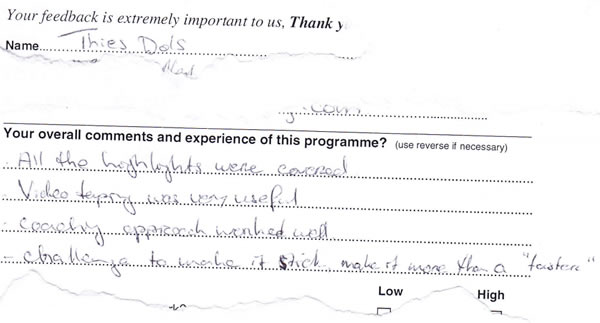 Your feedback is extremely important to us, Thank y
Name Thies Dols
.com
Your overall comments and experience of this programme? (use reverse if necessary)
- All the highlights were covered
- Video taping was very useful
- Coaching approach worked well
- challenge to make it stick, make it more than a "tastere"
Low High